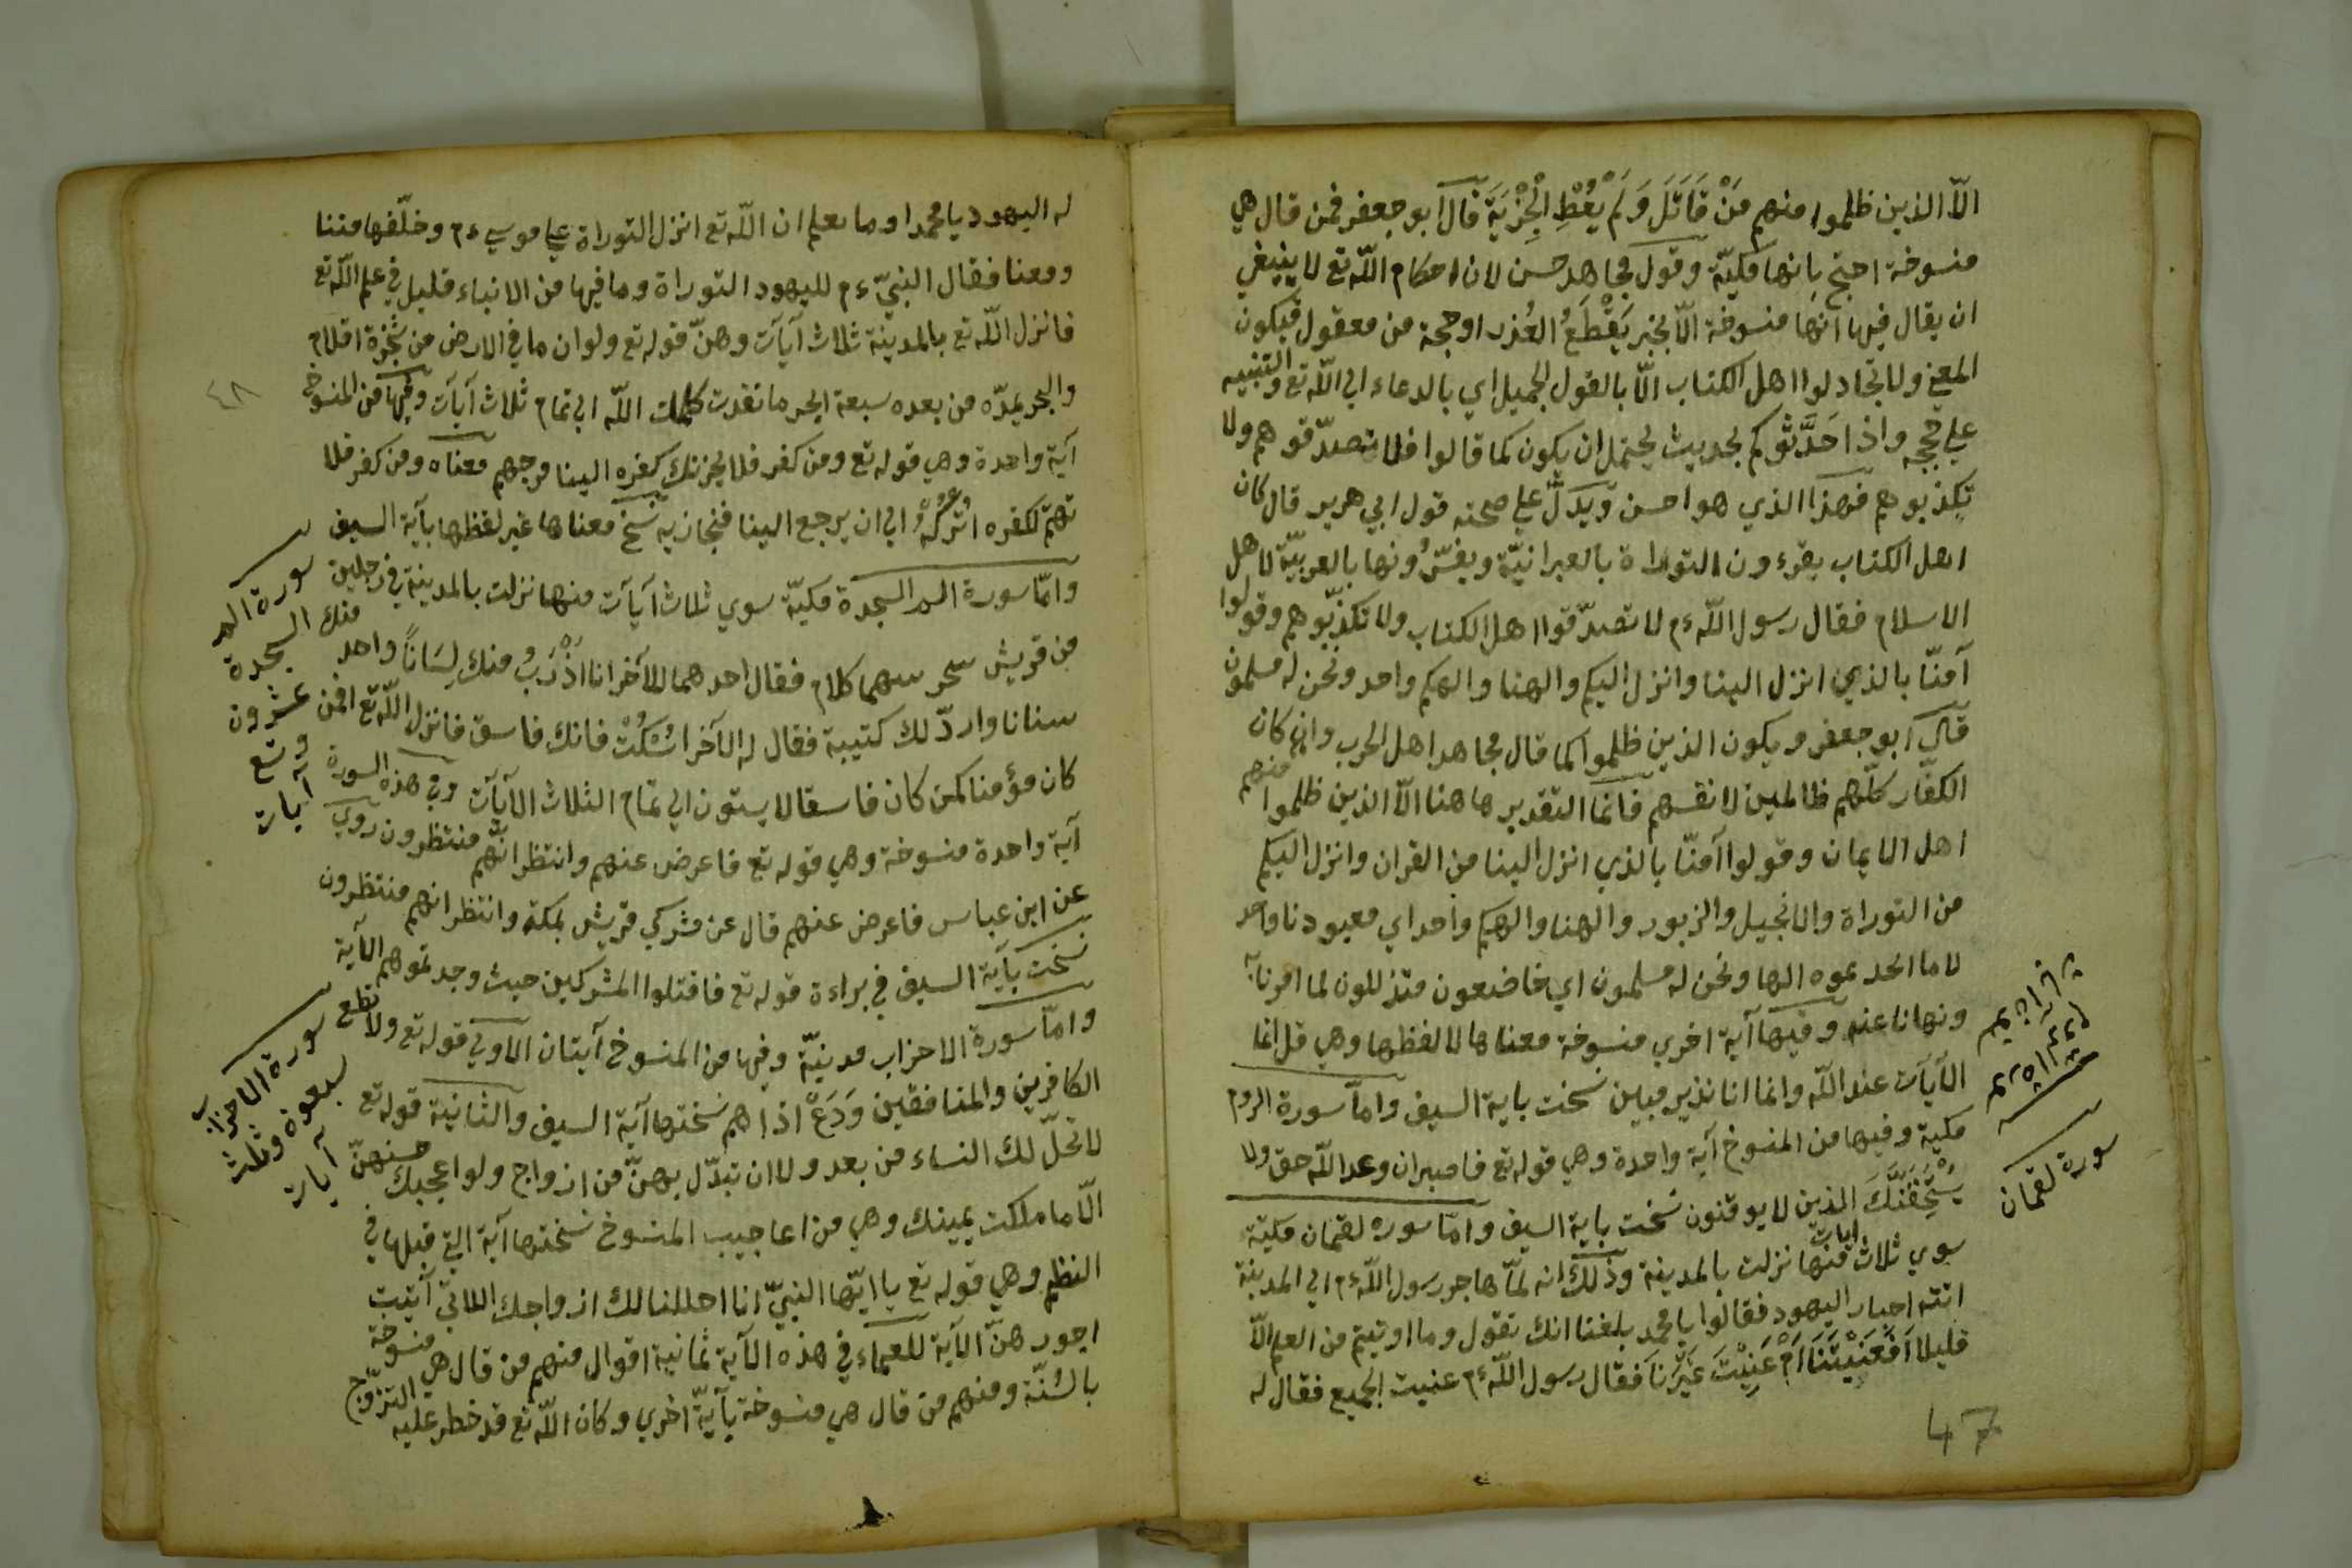 الّا الذين ظلموا منهم مَنْ قَاتَلَ وَلَمْ يُعْطِ الْجِزْيَةَ قال ابو جعفر فمن قال هي
منسوخة احتج بانها مكيّة وقول مجاهد حسن لان احكام اللّه تع لا ينبغي
ان يقال فيها انها منسوخة الّا بخبر يَقْطَعُ العُذر او حجة من معقول فيكون
المعنى ولا تجادلوا اهل الكتاب الّا بالقول الجميل اي بالدعاء الى اللّه تع والتنبيه
على حججه واذا حَدَّثُوكم بحديث يحتمل ان يكون كما قالوا فلا تصدّقوهم ولا
تكذبوهم فهذا الذي هو احسن ويدلّ علي صحته قول ابي هرير قال كان
اهل الكتاب يقرءون التوراة بالعبرانيّة ويفسّرُونها بالعربيّة لاهل
الاسلام فقال رسول اللّه ءم لا تصدّقوا اهل الكتاب ولا تكذّبوهم وقولوا
آمنّا بالذي انزل الينا وانزل اليكم والهنا والهكم واحد ونحن له مسلمون
قال ابو جعفر ويكون الذين ظلموا كما قال مجاهد اهل الحرب وان كان
الكفّار كلّهم ظالمين لانفسهم فانّما التقدير هاهنا الّا الذين ظلموا منهم
اهل الايمان وقولوا آمنّا بالذي انزل الينا من القران وانزل اليكم
من التوراة والانجيل والزبور والهنا والهكم واحد اي معبودنا واحد
لا ما اتخذتموه الها ونحن له مسلمون اي خاضعون متذللون لما امرنا به
ونهانا عنه وفيها آية اخري منسوخة معناها لا لفظها وهي قل انما
الآيات عند اللّه وانما انا نذير مبين نسخت باية السيف وامّا سورة الروم
مكية وفيها من المنسوخ آية واحدة وهي قوله تع فاصبر ان وعد اللّه حق ولا
يَسْتَخِفَّنَّكَ الذين لا يوقنون نسخت باية السيف وامّا سوره لقمان مكيّة
سوي ثلاث ايات منها نزلت بالمدينة وذلك انه لمّا هاجر رسول اللّه ءم الي المدينة
اتته احبار اليهود فقالوا يا محمد بلغنا انك تقول وما اوتيتم من العلم الّا
قليلا اَفَعَنَيْتَنَا اَمْ عَنِيْتَ غَيْرَنَا فقال رسول اللّه ءم عنيت الجميع فقال له
سورة لقمان
47
له اليهود يا محمد او ما تعلم ان اللّه تع انزل التوراة علي موسي ءم وخلّفها فتنا
ومعنا فقال النبيّ ءم لليهود التوراة وما فيها من الانباء قليل في علم اللّه تع
فانزل اللّه تع بالمدينة ثلاث آيآت وهنّ قوله تع ولو ان ما في الارض من شجرة اقلام
والبحر يمدّه من بعده سبعة ابحر ما نفدت كلمات اللّه الي تمام ثلاث آيآت وفيها من المنسوخ
آية واحدة وهي قوله تع ومن كفر فلا يحزنك كفره الينا مرجعهم معناه ومن كفر فلا
تهتمّ لكفره اتْرُكْهُ الي ان يرجع الينا فنجازيه نسخ معناها غير لفظها بآية السيف
وامّا سورة الم السجدة مكيّة سوي ثلاث آيآت منها نزلت بالمدينة في رجلين
من قريش شجر بينهما كلام فقال احدهما للآخر انا اَذْرَبُ منك لِسَاناً واحد منك
سنانا واردّ لك كتيبة فقال له الآخر اسْكُتْ فانك فاسق فانزل اللّه تع افمن
كان مؤمنا كمن كان فاسقا لا يستون الي تمام الثلاث الآيآت وفي هذه السورة
آية واحدة منسوخة وهي قوله تع فاعرض عنهم وانتظر انّهم منتظرون روي
عن ابن عباس فاعرض عنهم قال عن مشركي قريش بمكة وانتظر انهم منتظرون
نسخت بآية السيف في براءة قوله تع فاقتلوا المشركين حيث وجدتموهم الآية
وامّا سورة الاحزاب مدنيّة وفيها من المنسوخ آيتان الاولي قوله تع ولا تطع
الكافرين والمنافقين وَدَعْ اذاهم نسختها آية السيف والثانية قوله تع
لا تحلّ لك النساء من بعد ولا ان تبدّل بهنّ من ازواج ولو اعجبك حسنهنّ
الّا ما ملكت يمينك وهي من اعاجيب المنسوخ نسختها آية التي قبلها في
النظم وهي قوله تع يا ايّها النبيّ انا احللنا لك ازواجك اللاتي آتيت
اجورهنّ الآية للعلماء في هذه الآية ثمانية اقوال منهم من قال هي منسوخة
بالسُنّة ومنهم من قال هي منسوخة بآيةّ اخري وكان اللّه تع قد خطر عليه التزوّج
سورة الم
السجدة
عشرون
وتسع
آيات
سورة الاحزاب
سبعون وثلث
آيات
٤٨